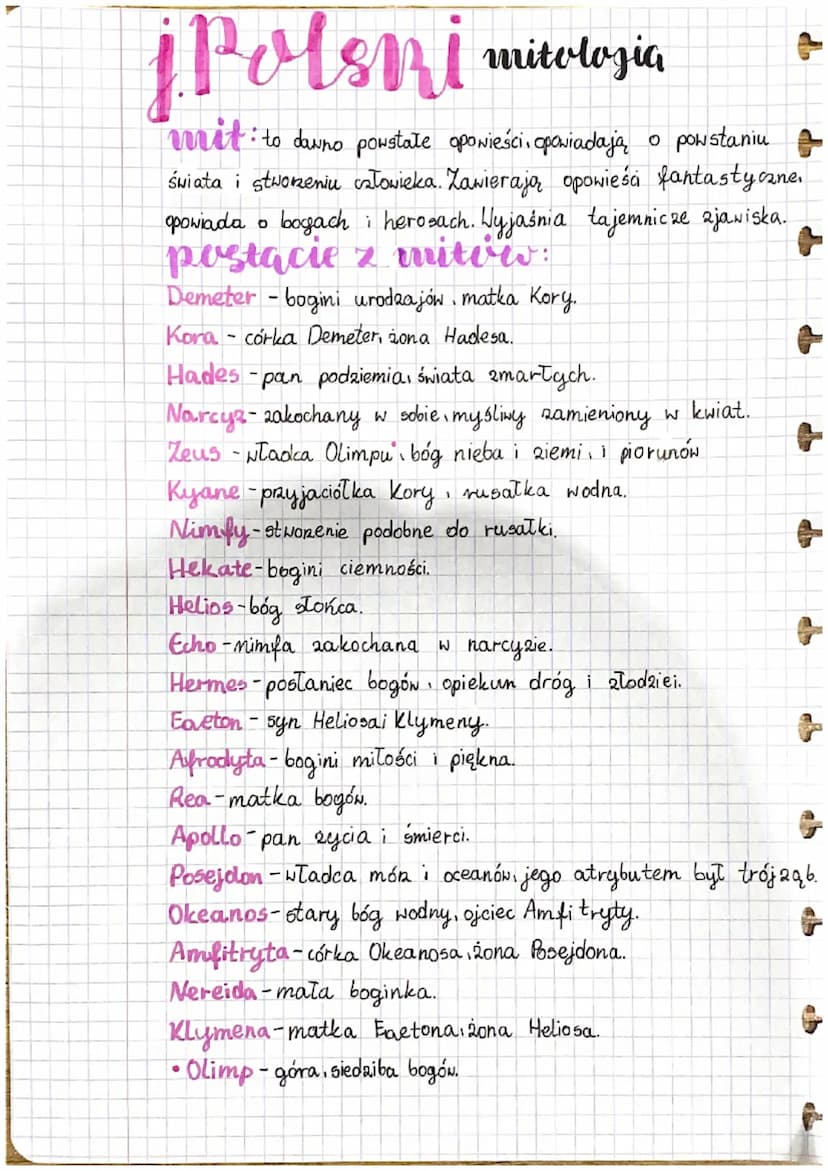 j. Polski mitologia
mit: to dawno powstałe opowieści, opowiadają o powstaniu
świata i stworzeniu człowieka. Zawierają opowieści fantastyczne,
opowiada o bogach i herosach. Wyjaśnia tajemnicze zjawiska.
postacie z mitów:
Demeter - bogini urodzajów, matka Kory.
Kora - córka Demeter, żona Hadesa.
Hades - pan podziemia, świata zmarłych.
Narcyz - zakochany w sobie, myśliwy zamieniony w kwiat.
Zeus - władca Olimpu, bóg nieba i ziemi, i piorunów
Kyane - przyjaciółka Kory, rusałka wodna.
Nimfy - stworzenie podobne do rusałki.
Hekate - bogini ciemności.
Helios - bóg słońca.
Echo - nimfa zakochana w narcyzie.
Hermes - posłaniec bogów, opiekun dróg i złodziei.
Faeton - syn Heliosa i Klymeny.
Afrodyta - bogini miłości i piękna.
Rea - matka bogów.
Apollo - pan życia i śmierci.
Posejdon - władca mórz i oceanów, jego atrybutem był trójząb.
Okeanos - stary bóg wodny, ojciec Amfitryty.
Amfitryta - córka Okeanosa, żona Posejdona.
Nereida - mała boginka.
Klymena - matka Faetona, żona Heliosa.
• Olimp - góra, siedziba bogów.